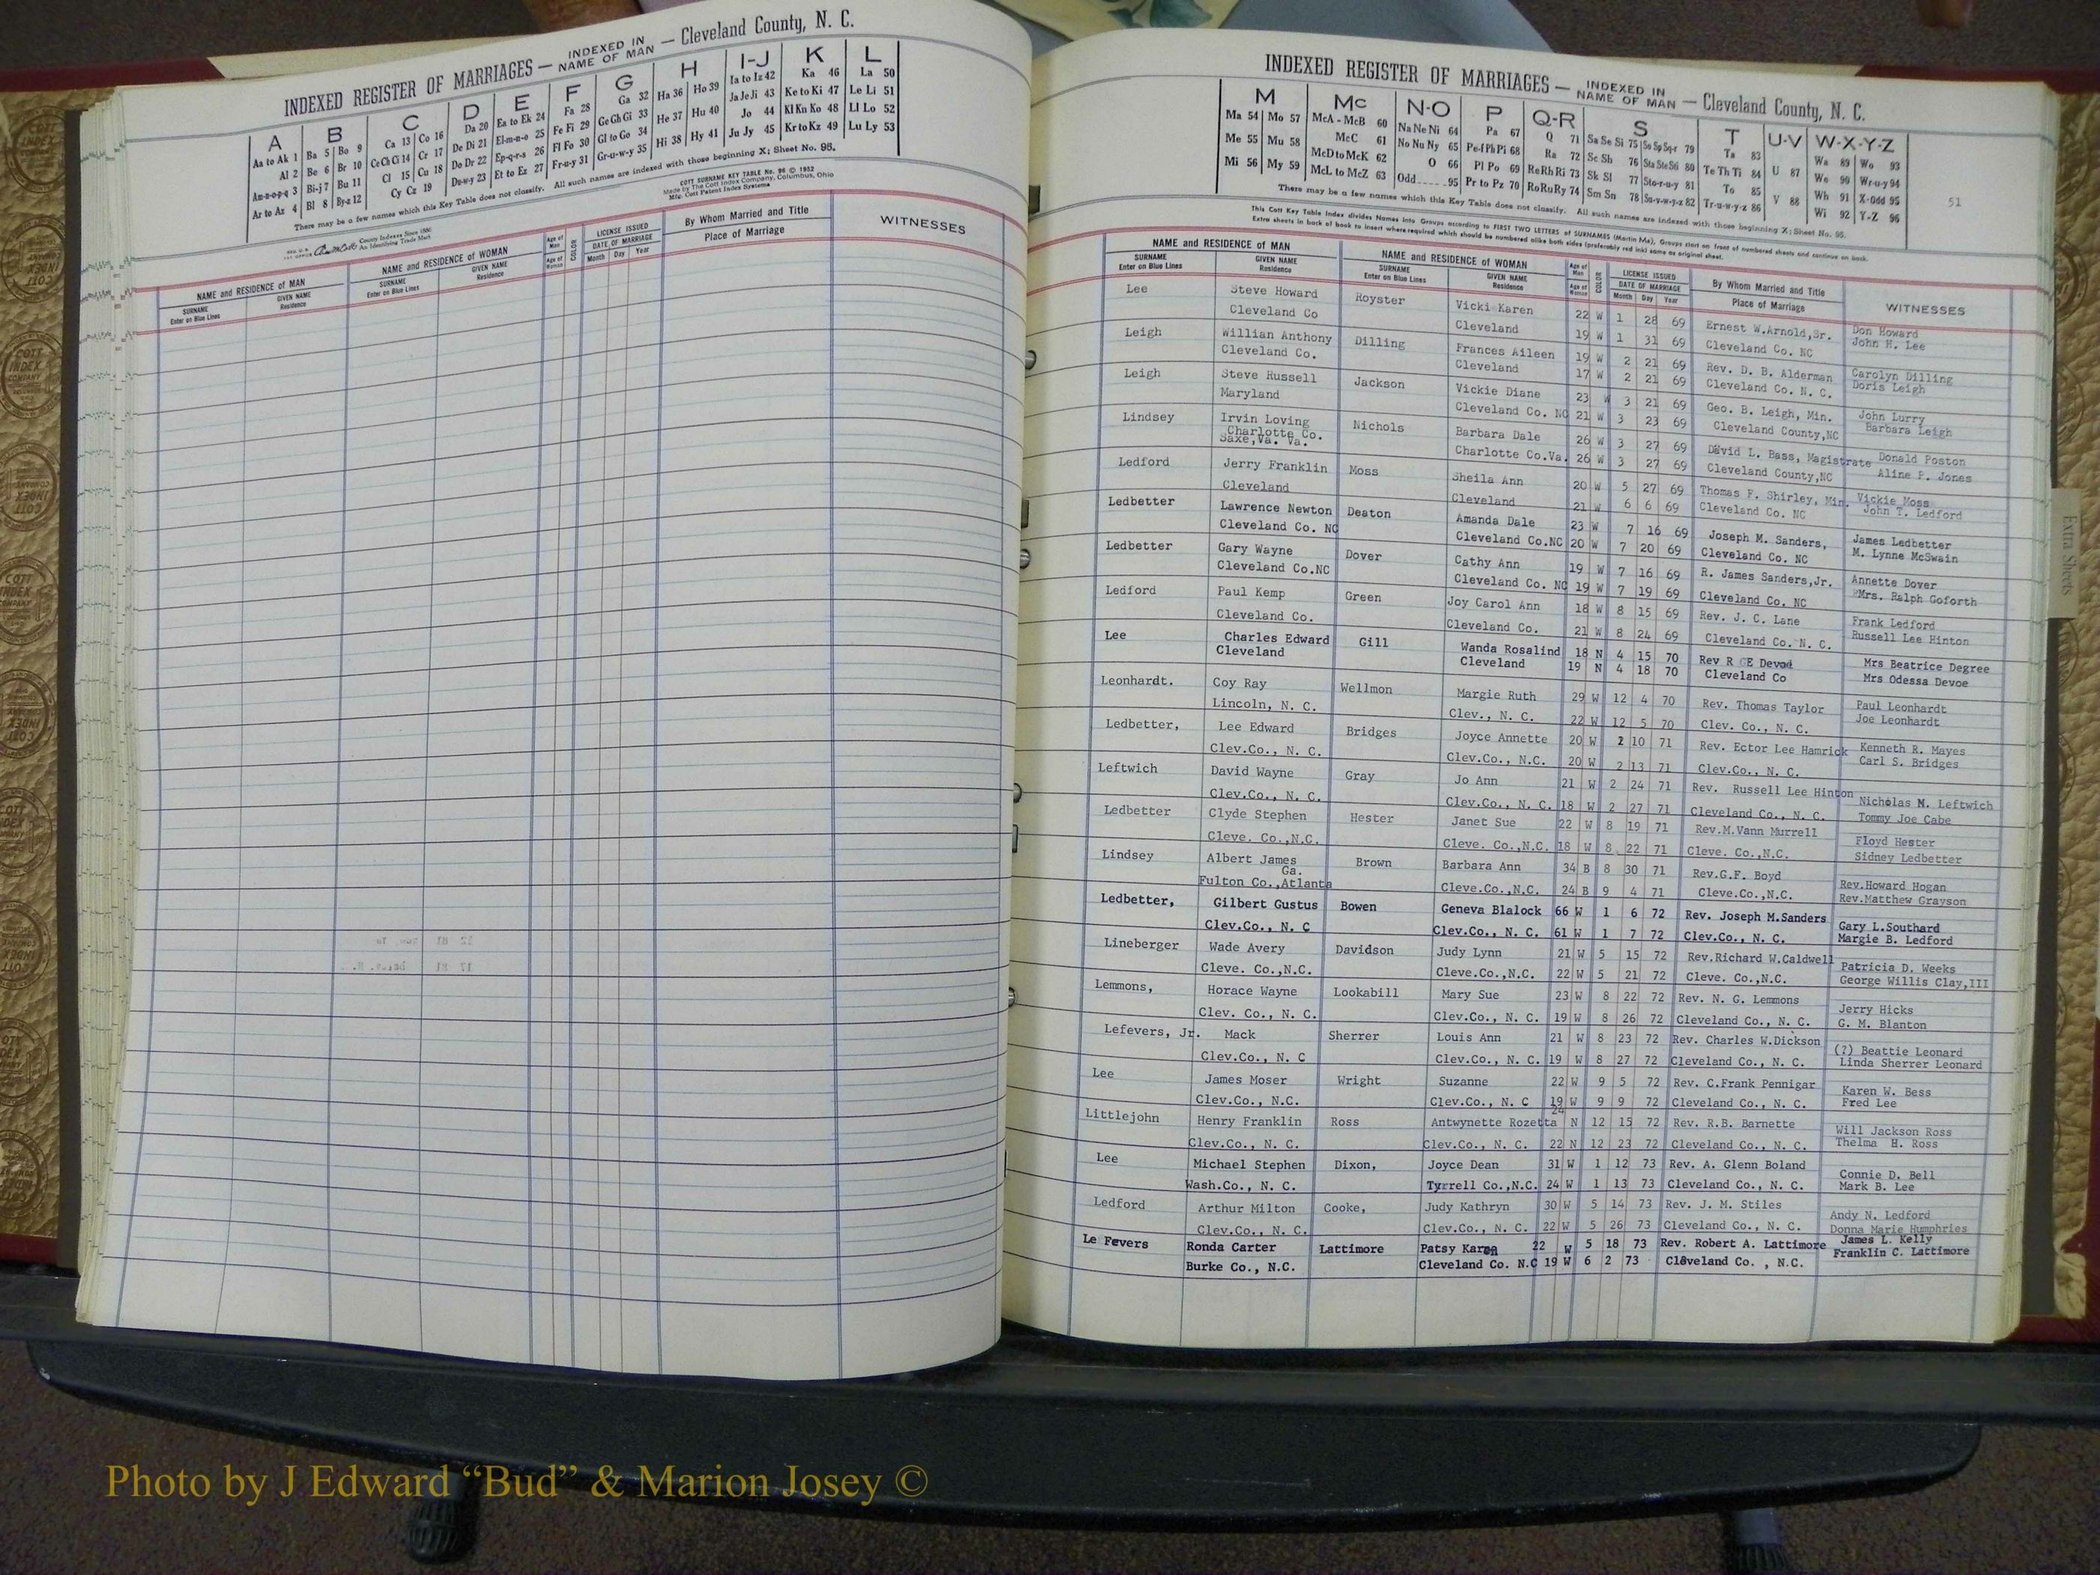 INDEXED REGISTER OF MARRIAGES — INDEXED IN NAME OF MAN — Cleveland County, N. C.
A B C D E F G H I-J K L
Aa to Ak 1 Ba 5 Bo 9 Ca 13 Co 16 Da 20 Ea to Ek 24 Fa 28 Ga 32 Ha 36 Ho 39 Ia to Iz 42 Ka 46 La 50
Al 2 Be 6 Br 10 Ce Ch Ci 14 Cr 17 De Di 21 El-m-n-o 25 Fe Fi 29 Ge Gh Gi 33 He 37 Hu 40 Ja Je Ji 43 Ke to Ki 47 Le Li 51
Am-n-o-p-q 3 Bi-j 7 Bu 11 Cl 15 Cu 18 Do Dr 22 Ep-q-r-s 26 Fl Fo 30 Gl to Go 34 Hi 38 Hy 41 Jo 44 Kl Kn Ko 48 Ll Lo 52
Ar to Az 4 Bl 8 By-z 12 Cy Cz 19 Du-w-y 23 Et to Ez 27 Fr-u-y 31 Gr-u-w-y 35 Ju Jy 45 Kr to Kz 49 Lu Ly 53
There may be a few names which this Key Table does not classify. All such names are indexed with those beginning X; Sheet No. 95.
COTT SURNAME KEY TABLE No. 96 © 1952
Made by The Cott Index Company, Columbus, Ohio
Mfg. Cott Patent Index Systems
County Indexes Since 1888
An Identifying Trade Mark
NAME and RESIDENCE OF MAN NAME and RESIDENCE OF WOMAN Age of Man Age of Woman COLOR LICENSE ISSUED DATE OF MARRIAGE By Whom Married and Title Place of Marriage WITNESSES
SURNAME Enter on Blue Lines GIVEN NAME Residence SURNAME Enter on Blue Lines GIVEN NAME Residence Month Day Year
INDEXED REGISTER OF MARRIAGES — INDEXED IN NAME OF MAN — Cleveland County, N. C.
M Mc N-O P Q-R S T U-V W-X-Y-Z
Ma 54 Mo 57 McA - McB 60 Na Ne Ni 64 Pa 67 Q 71 Sa Se Si 75 So Sp Sq-r 79 Ta 83 U 87 Wa 89 Wo 93
Me 55 Mu 58 McC 61 No Nu Ny 65 Pe-f Ph Pi 68 Ra 72 Sc Sh 76 Sta Ste Sti 80 Te Th Ti 84 V 88 We 90 Wr-u-y 94
Mi 56 My 59 McD to McK 62 O 66 Pl Po 69 Re Rh Ri 73 Sk Sl 77 Sto-r-u-y 81 To 85 Wh 91 X-Odd 95
McL to McZ 63 Odd 95 Pr to Pz 70 Ro Ru Ry 74 Sm Sn 78 Su-v-w-y-z 82 Tr-u-w-y-z 86 Wi 92 Y-Z 96
There may be a few names which this Key Table does not classify. All such names are indexed with those beginning X; Sheet No. 95.
51
This Cott Key Table Index divides Names into Groups according to FIRST TWO LETTERS of SURNAMES (Martin Ma). Groups start on front of numbered sheets and continue on back.
Extra sheets in back of book to insert where required which should be numbered alike both sides (preferably red ink) same as original sheet.
NAME and RESIDENCE OF MAN NAME and RESIDENCE OF WOMAN Age of Man Age of Woman COLOR LICENSE ISSUED DATE OF MARRIAGE By Whom Married and Title Place of Marriage WITNESSES
SURNAME Enter on Blue Lines GIVEN NAME Residence SURNAME Enter on Blue Lines GIVEN NAME Residence Month Day Year
Lee Steve Howard Royster Vicki Karen 22 W 1 28 69 Ernest W.Arnold,Sr. Don Howard
Cleveland Co Cleveland 19 W 1 31 69 Cleveland Co. NC John H. Lee
Leigh Willian Anthony Dilling Frances Aileen 19 W 2 21 69 Rev. D. B. Alderman Carolyn Dilling
Cleveland Co. Cleveland 17 W 2 21 69 Cleveland Co. N. C. Doris Leigh
Leigh Steve Russell Jackson Vickie Diane 23 W 3 21 69 Geo. B. Leigh, Min. John Lurry
Maryland Cleveland Co. NC 21 W 3 23 69 Cleveland County,NC Barbara Leigh
Lindsey Irvin Loving Nichols Barbara Dale 26 W 3 27 69 David L. Bass, Magistrate Donald Poston
Charlotte Co.
Saxe,Va. Va. Charlotte Co.Va. 26 W 3 27 69 Cleveland County,NC Aline P. Jones
Ledford Jerry Franklin Moss Sheila Ann 20 W 5 27 69 Thomas F. Shirley, Min. Vickie Moss
Cleveland Cleveland 21 W 6 6 69 Cleveland Co. NC John T. Ledford
Ledbetter Lawrence Newton Deaton Amanda Dale 23 W 7 16 69 Joseph M. Sanders, James Ledbetter
Cleveland Co. NC Cleveland Co.NC 20 W 7 20 69 Cleveland Co. NC M. Lynne McSwain
Ledbetter Gary Wayne Dover Cathy Ann 19 W 7 16 69 R. James Sanders,Jr. Annette Dover
Cleveland Co.NC Cleveland Co. NC 19 W 7 19 69 Cleveland Co. NC Mrs. Ralph Goforth
Ledford Paul Kemp Green Joy Carol Ann 18 W 8 15 69 Rev. J. C. Lane Frank Ledford
Cleveland Co. Cleveland Co. 21 W 8 24 69 Cleveland Co. N. C. Russell Lee Hinton
Lee Charles Edward Gill Wanda Rosalind 18 N 4 15 70 Rev R E Devoe Mrs Beatrice Degree
Cleveland Cleveland 19 N 4 18 70 Cleveland Co Mrs Odessa Devoe
Leonhardt. Coy Ray Wellmon Margie Ruth 29 W 12 4 70 Rev. Thomas Taylor Paul Leonhardt
Lincoln, N. C. Clev., N. C. 22 W 12 5 70 Clev. Co., N. C. Joe Leonhardt
Ledbetter, Lee Edward Bridges Joyce Annette 20 W 2 10 71 Rev. Ector Lee Hamrick Kenneth R. Mayes
Clev.Co., N. C. Clev.Co., N.C. 20 W 2 13 71 Clev.Co., N. C. Carl S. Bridges
Leftwich David Wayne Gray Jo Ann 21 W 2 24 71 Rev. Russell Lee Hinton Nicholas M. Leftwich
Clev.Co., N. C. Clev.Co., N. C. 18 W 2 27 71 Cleveland Co., N. C. Tommy Joe Cabe
Ledbetter Clyde Stephen Hester Janet Sue 22 W 8 19 71 Rev.M.Vann Murrell Floyd Hester
Cleve. Co.,N.C. Cleve. Co.,N.C. 18 W 8 22 71 Cleve. Co.,N.C. Sidney Ledbetter
Lindsey Albert James Brown Barbara Ann 34 B 8 30 71 Rev.G.F. Boyd Rev.Howard Hogan
Ga.
Fulton Co.,Atlanta Cleve.Co.,N.C. 24 B 9 4 71 Cleve.Co.,N.C. Rev.Matthew Grayson
Ledbetter, Gilbert Gustus Bowen Geneva Blalock 66 W 1 6 72 Rev. Joseph M.Sanders Gary L.Southard
Clev.Co., N. C Clev.Co., N. C. 61 W 1 7 72 Clev.Co., N. C. Margie B. Ledford
Lineberger Wade Avery Davidson Judy Lynn 21 W 5 15 72 Rev.Richard W.Caldwell Patricia D. Weeks
Cleve. Co.,N.C. Cleve.Co.,N.C. 22 W 5 21 72 Cleve. Co.,N.C. George Willis Clay,III
Lemmons, Horace Wayne Lookabill Mary Sue 23 W 8 22 72 Rev. N. G. Lemmons Jerry Hicks
Clev. Co., N. C. Clev.Co., N. C. 19 W 8 26 72 Cleveland Co., N. C. G. M. Blanton
Lefevers, Jr. Mack Sherrer Louis Ann 21 W 8 23 72 Rev. Charles W.Dickson (?) Beattie Leonard
Clev.Co., N. C Clev.Co., N. C. 19 W 8 27 72 Cleveland Co., N. C. Linda Sherrer Leonard
Lee James Moser Wright Suzanne 22 W 9 5 72 Rev. C.Frank Pennigar Karen W. Bess
Clev.Co., N.C. Clev.Co., N. C 19 W 9 9 72 Cleveland Co., N. C. Fred Lee
Littlejohn Henry Franklin Ross Antwynette Rozetta 24 N 12 15 72 Rev. R.B. Barnette Will Jackson Ross
Clev.Co., N. C. Clev.Co., N. C. 22 N 12 23 72 Cleveland Co., N. C. Thelma H. Ross
Lee Michael Stephen Dixon, Joyce Dean 31 W 1 12 73 Rev. A. Glenn Boland Connie D. Bell
Wash.Co., N. C. Tyrrell Co.,N.C. 24 W 1 13 73 Cleveland Co., N. C. Mark B. Lee
Ledford Arthur Milton Cooke, Judy Kathryn 30 W 5 14 73 Rev. J. M. Stiles Andy N. Ledford
Clev.Co., N. C. Clev.Co., N. C. 22 W 5 26 73 Cleveland Co., N. C. Donna Marie Humphries
Le Fevers Ronda Carter Lattimore Patsy Karen 22 W 5 18 73 Rev. Robert A. Lattimore James L. Kelly
Burke Co., N.C. Cleveland Co. N.C 19 W 6 2 73 Cleveland Co. , N.C. Franklin C. Lattimore
Extra Sheets
Photo by J Edward “Bud” & Marion Josey ©